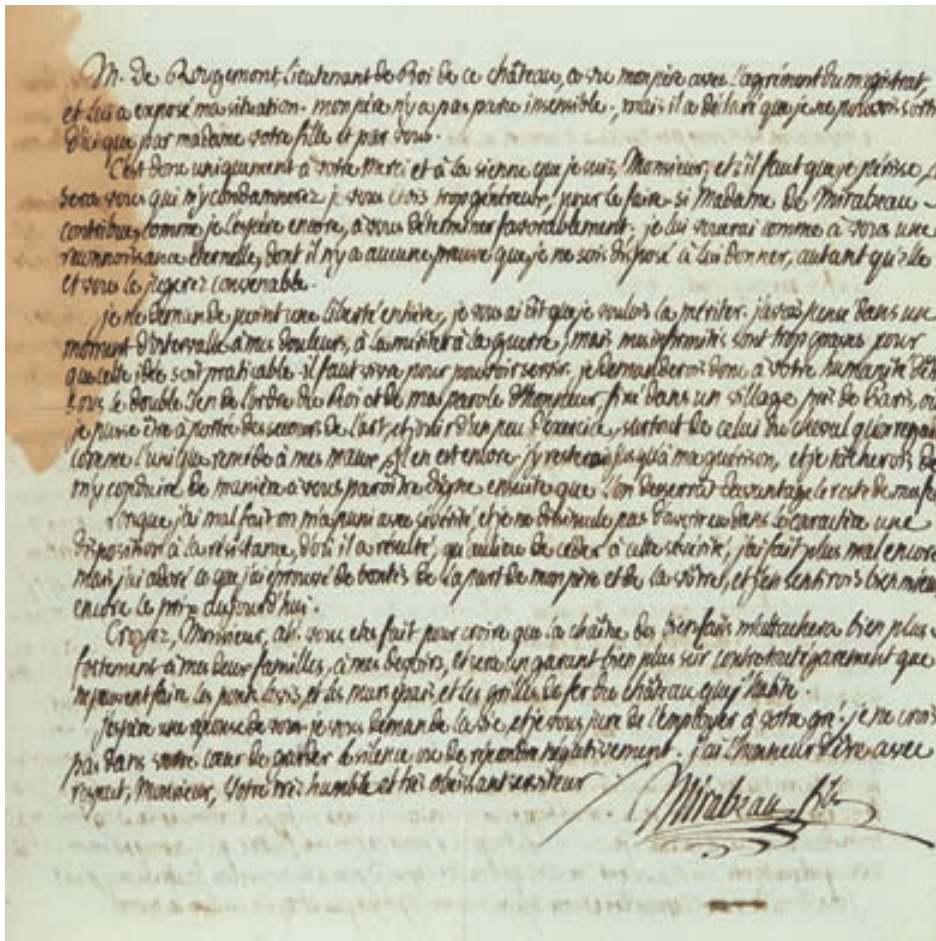 M. de Rougemont, Lieutenant de Roi de ce château, a vu mon père avec l'agrément du magistrat,
et lui a exposé ma situation. mon père n'y a pas paru insensible; mais il a déclaré que je ne pouvois sortir
d'ici que par madame votre fille et par vous.
C'est donc uniquement à votre merci et à la sienne que je suis, Monsieur, et s'il faut que je périsse,
sera vous qui m'y condamnerez. je vous crois trop généreux, pour le faire. si Madame de Mirabeau
contribue, comme je l'espère encore, à vous déterminer favorablement, je lui vouerai comme à vous une
reconnoissance éternelle, dont il n'y a aucune preuve que je ne sois disposé à lui donner, autant qu'elle
et vous le jugerez convenable.
je ne demande point une liberté entière, je vous ai dit que je voulois la mériter. j'avois pensé dans un
moment d'intervalle à mes douleurs, à la mériter à la guerre; mais mes infirmités sont trop graves pour
que cette idée soit praticable. il faut vivre pour pouvoir servir. je demanderois donc à votre humanité d'être
sous le double lien de l'ordre du Roi et de ma parole d'honneur, fixé dans un village près de Paris, où
je puisse être à portée des secours de l'art, et d'un peu d'exercice, surtout de celui du cheval qu'on
comme l'unique remède à mes maux, s'il en est encore. j'y resterai jusqu'à ma guérison, et je tâcherois de
m'y conduire de manière à vous paroître digne ensuite que l'on desserrât davantage le reste de mes
lorsque j'ai mal fait on m'a puni avec sévérité, et je ne dissimule pas d'avoir eu dans le caractère une
disposition à la résistance, d'où il a résulté, qu'au lieu de céder à cette sévérité, j'ai fait plus mal encore
mais j'ai adoré ce que j'ai éprouvé de bontés de la part de mon père et de la vôtre, et j'en sentirois bien mieux
encore le prix aujourd'hui.
Croyez, Monsieur, ah! vous etes fait pour croire que la chaîne des bienfaits m'attachera bien plus
fortement à mes deux familles, à mes devoirs, et sera un garant bien plus sûr contre tout égarement que
ne peuvent faire les ponts levis, et les murs épais et les grilles de fer du château que j'habite.
J'espère une réponse de vous. je vous demande la vie, et je vous jure de l'employer à votre gré. je ne crois
pas dans votre cœur de garder le silence ou de répondre négativement. j'ai l'honneur d'être avec
respect, Monsieur, Votre très humble et très obéissant serviteur
Mirabeau fils